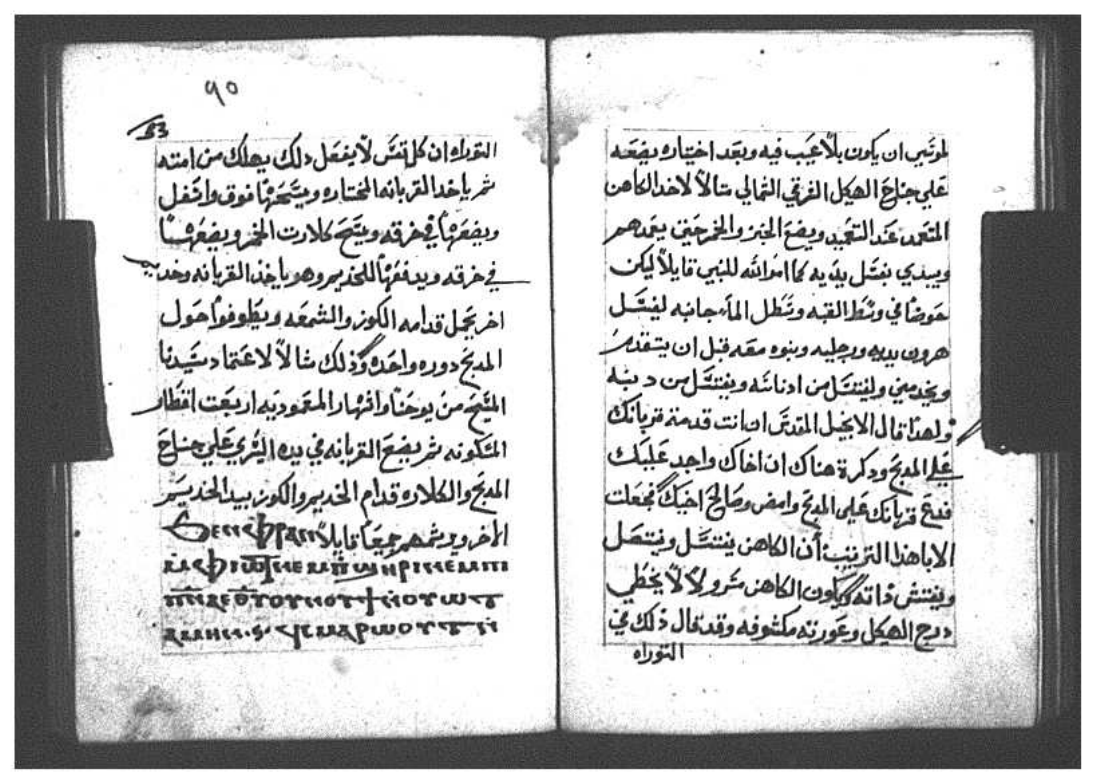 لموسى ان يكون بلا عيب فيه وبعد اختياره يضعه
علي جناح الهيكل الشمالي مثالاً لاخد الكاهن
المتعمد عند التعميد ويضع الخبز والخمر حين يعمدهم
ويبتدي بغسل يديه كما امر الله للنبي قايلاً ليكن
حوضاً في وسط القبه وتنطل الماء جانبه ليغتسل
هرون يديه ورجليه وبنوه معه قبل ان يتقدمر
ويخدمني وليغتسل من ادناسه ويغتسل من دنبه
ولهذا قال الانجيل المقدس ان انت قدمة قربانك
علي المدبح ودكرة هناك ان اخاك واجد عليك
فدع قربانك علي المدبح وامض وصالح اخيك فجعلت
الابا هذا الترتيب أن الكاهن يغتسل ويتنصل
ويفتش ذاته ويكون الكاهن مسرولاً لا يخطي
درج الهيكل وعورته مكشوفه وقد قال ذلك في
التوراه
٩٥
التوراه ان كل نفس لا يفعل دلك يهلك من امته
ثم ياخد القربانه المختاره ويمسحها فوق واسفل
ويضعها في خرقه ويمسح كلارت الخمر ويضعها
في خرقه ويدفعها للخديم وهو ياخذ القربانه وخديم
اخر يحمل قدامه الكوز والشمعه ويطوفوا حول
المدبح دوره واحده وذلك مثالاً لاعتماد سيدنا
المسيح من يوحنا واظهار المعموديه اربعت اقطار
المسكونه ثم يضع القربانه في يده اليسري علي جناح
المدبح والكلاره قدام الخديم والكوز بيد الخديم
الاخر ويرشمهم جميعاً قايلاً Ϧⲉⲛ ⲫⲣⲁⲛ
ⲙⲫⲓⲱⲧ ⲛⲉⲙ ⲡϣⲏⲣⲓ ⲛⲉⲙ ⲡⲓ
ⲡⲛⲁ ⲉⲑⲟⲩ ⲟⲩⲛⲟⲩϯ ⲛⲟⲩⲱⲧ
ϥⲥⲙⲁⲣⲱⲟⲩⲧ